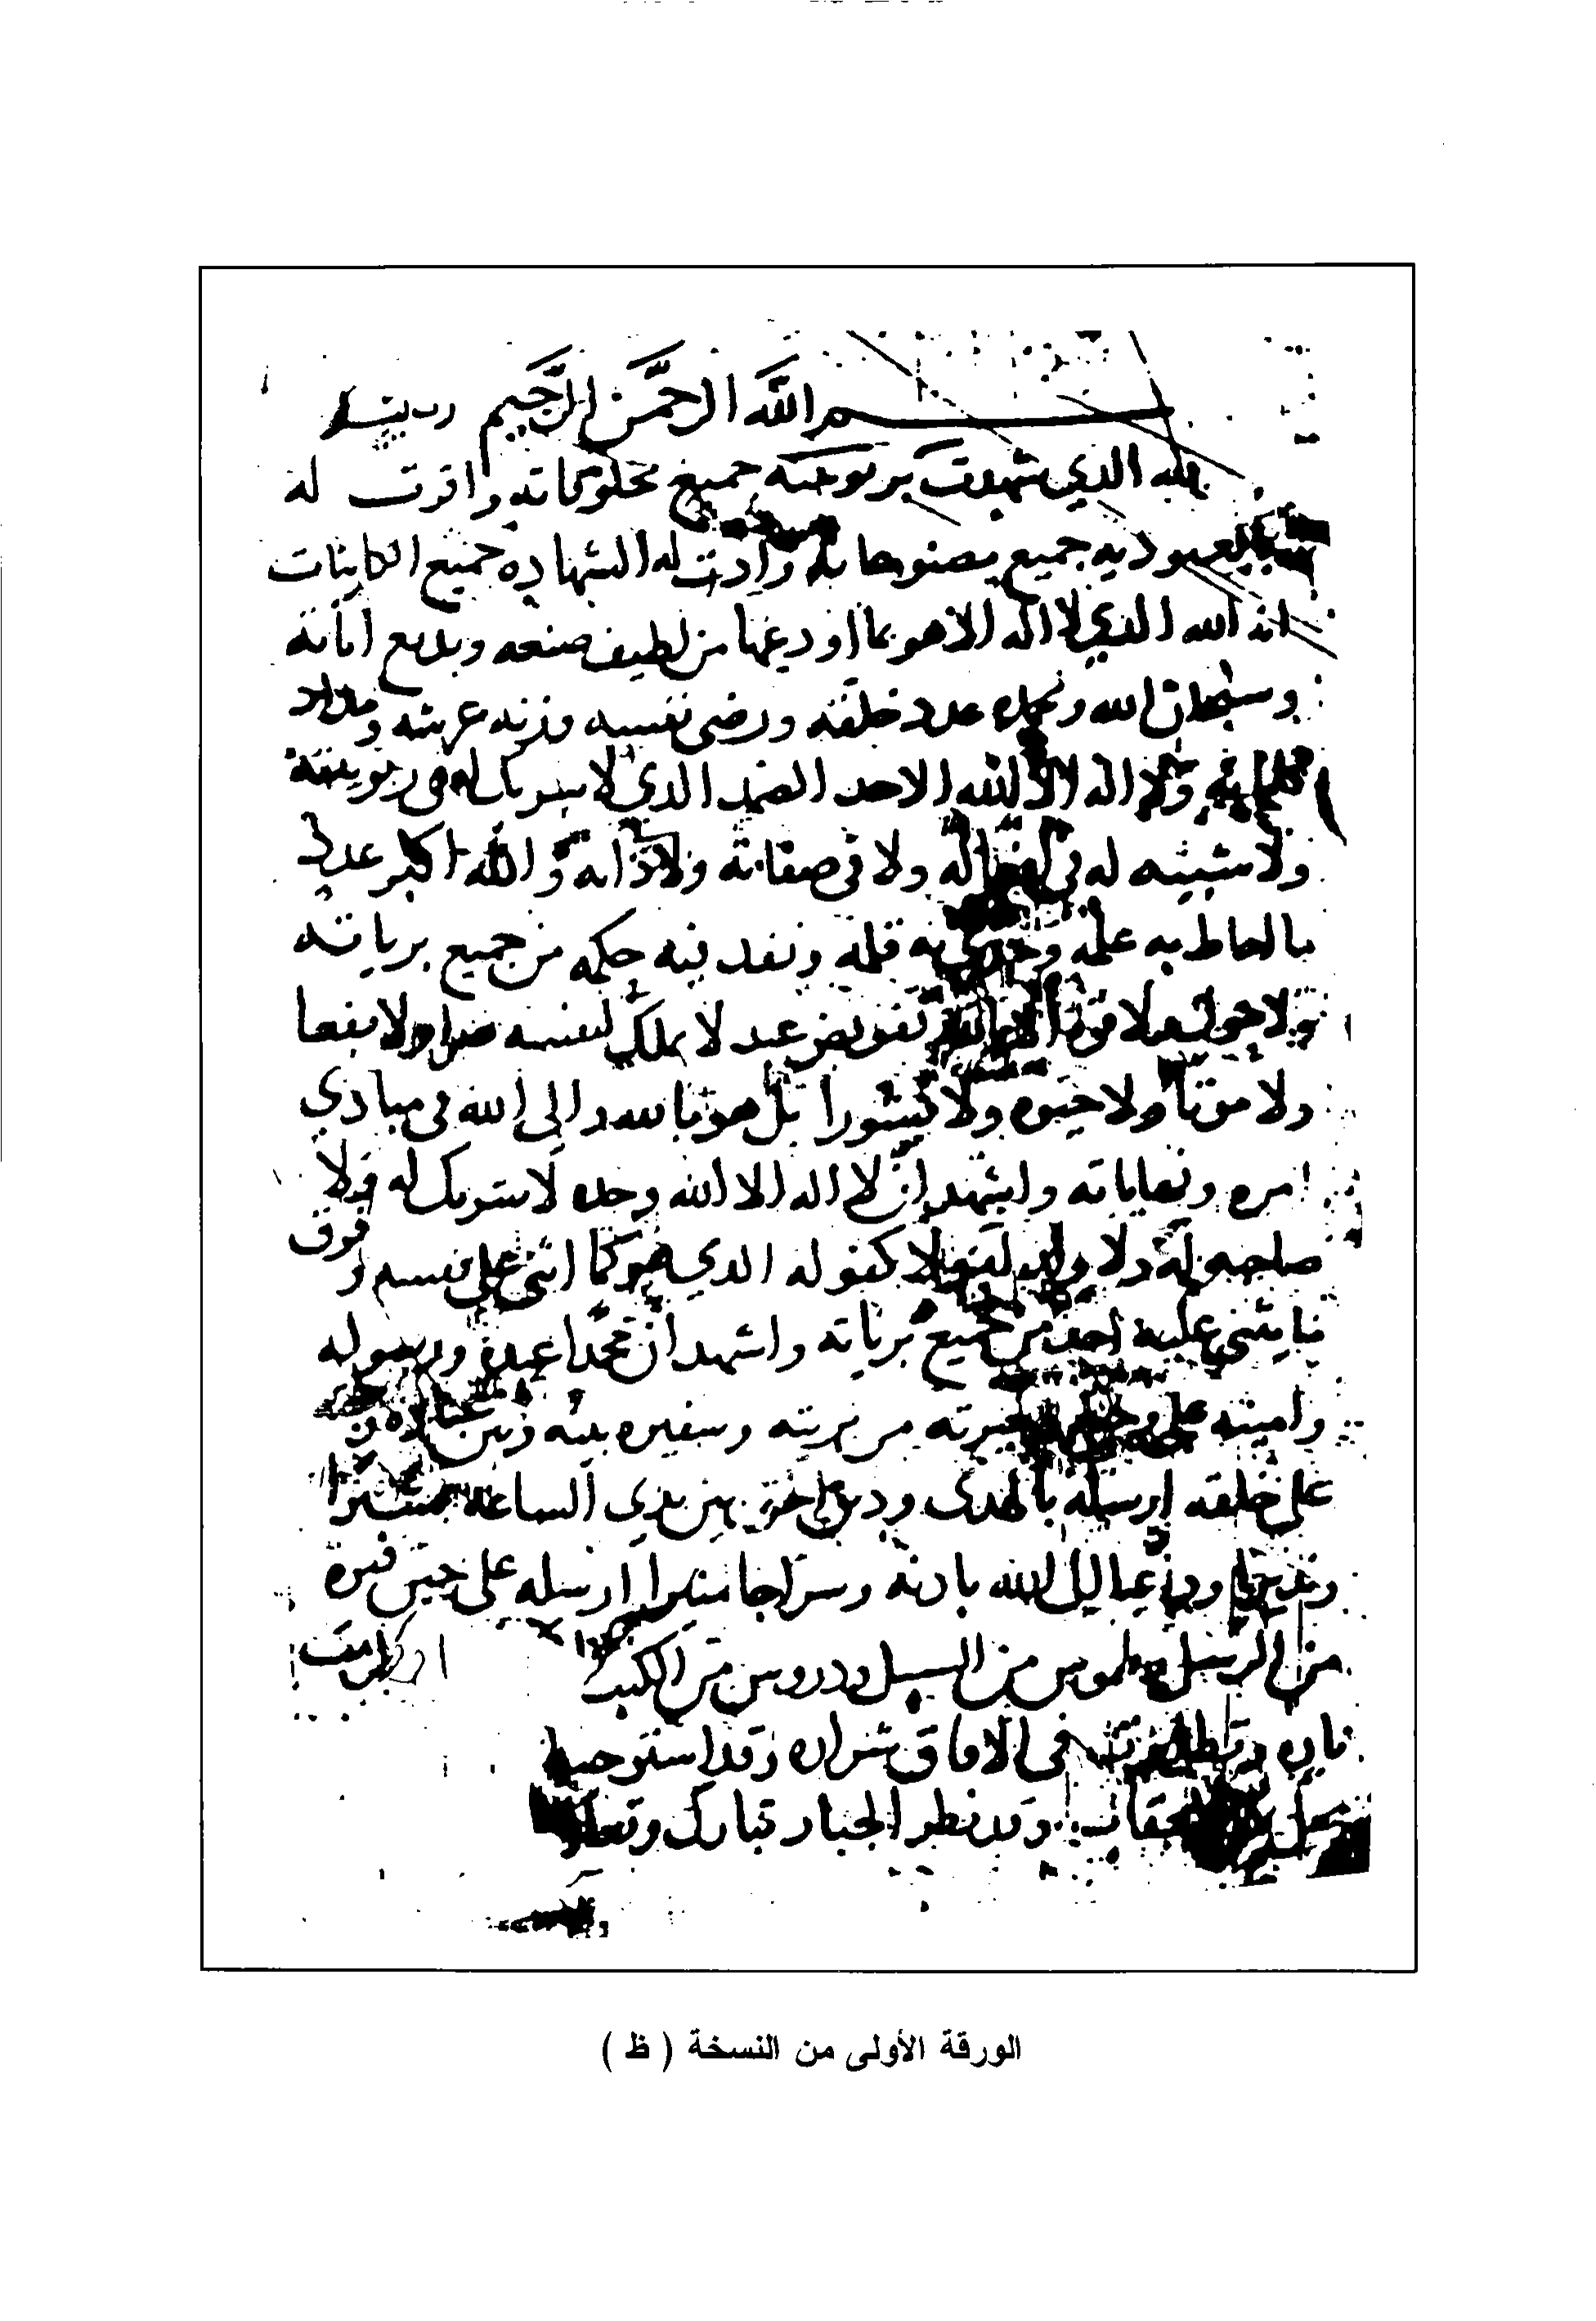 بسم الله الرحمن الرحيم رب يسر
لله الذي شهدت بربوبيته جميع مخلوقاته واقرت له
بالعبوديه جميع مصنوعاته وادت له الشهاده جميع الكاينات
انه الله الذي لا اله الا هو بما اودعها من لطيف صنعه وبديع اياته
وسبحان الله وبحمده عدد خلقه ورضى نفسه وزنه عرشه ومداد
كلماته ولا اله الا الله الاحد الصمد الذي لا شريك له في ربوبيته
ولا شبيه له في افعاله ولا في صفاته ولا ذاته والله اكبر عدد
ما احاط به علمه وجرى به قلمه ونفد فيه حكمه من جميع برياته
ولا حول ولا قوة الا بالله تفويض عبد لا يملك لنفسه ضرا ولا نفعا
ولا موتا ولا حيوه ولا نشورا بل هو بالله والى الله في مبادي
امره ونهاياته واشهد ان لا اله الا الله وحده لا شريك له ولا
صاحبه له ولا ولد له ولا كفو له الذي هو كما اثنى على نفسه وفوق
ما يثني عليه احد من جميع برياته واشهد ان محمدا عبده ورسوله
وامينه على وحيه وخيرته من بريته وسفيره بينه وبين عباده وحجته
على خلقه ارسله بالهدى ودين الحق بين يدي الساعه بشيرا
ونذيرا وداعيا الى الله باذنه وسراجا منيرا ارسله على حين فترة
من الرسل وطموس من السبل ودروس من الكتب
في الافاق شراره وقد استوجب
وقد نظر الجبار تبارك وتعالى
الورقة الأولى من النسخة ( ظ )